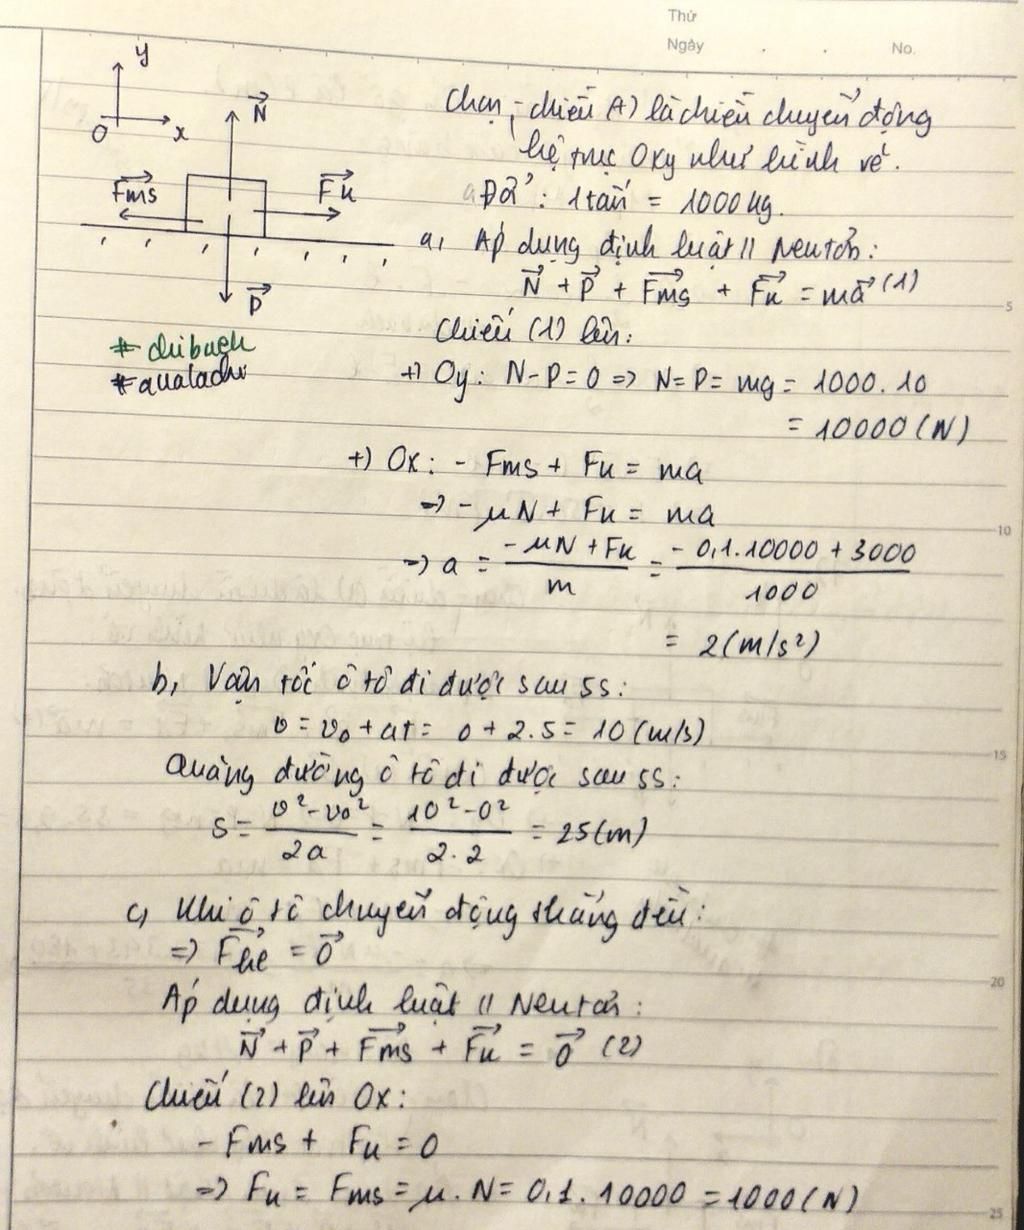 Thứ
Ngày . . No.
y
O x
N
Fms Fk
P
#chibach
#aualachi
Chọn chiều (+) là chiều chuyển động
hệ trục Oxy như hình vẽ.
Đổi: 1 tấn = 1000 kg.
a, Áp dụng định luật II Newton:
N + P + Fms + Fk = ma (1)
Chiếu (1) lên:
+) Oy: N - P = 0 => N = P = mg = 1000.10
= 10000 (N)
+) Ox: - Fms + Fk = ma
=> - μN + Fk = ma
=> a = (-μN + Fk)/m = (-0,1.10000 + 3000)/1000
= 2 (m/s²)
b, Vận tốc ô tô đi được sau 5s:
v = v₀ + at = 0 + 2.5 = 10 (m/s)
Quãng đường ô tô đi được sau 5s:
S = (v² - v₀²)/2a = (10² - 0²)/2.2 = 25 (m)
c, Khi ô tô chuyển động thẳng đều:
=> Fhl = 0
Áp dụng định luật II Newton:
N + P + Fms + Fk = 0 (2)
Chiếu (2) lên Ox:
- Fms + Fk = 0
=> Fk = Fms = μ.N = 0,1.10000 = 1000 (N)
5
10
15
20
25